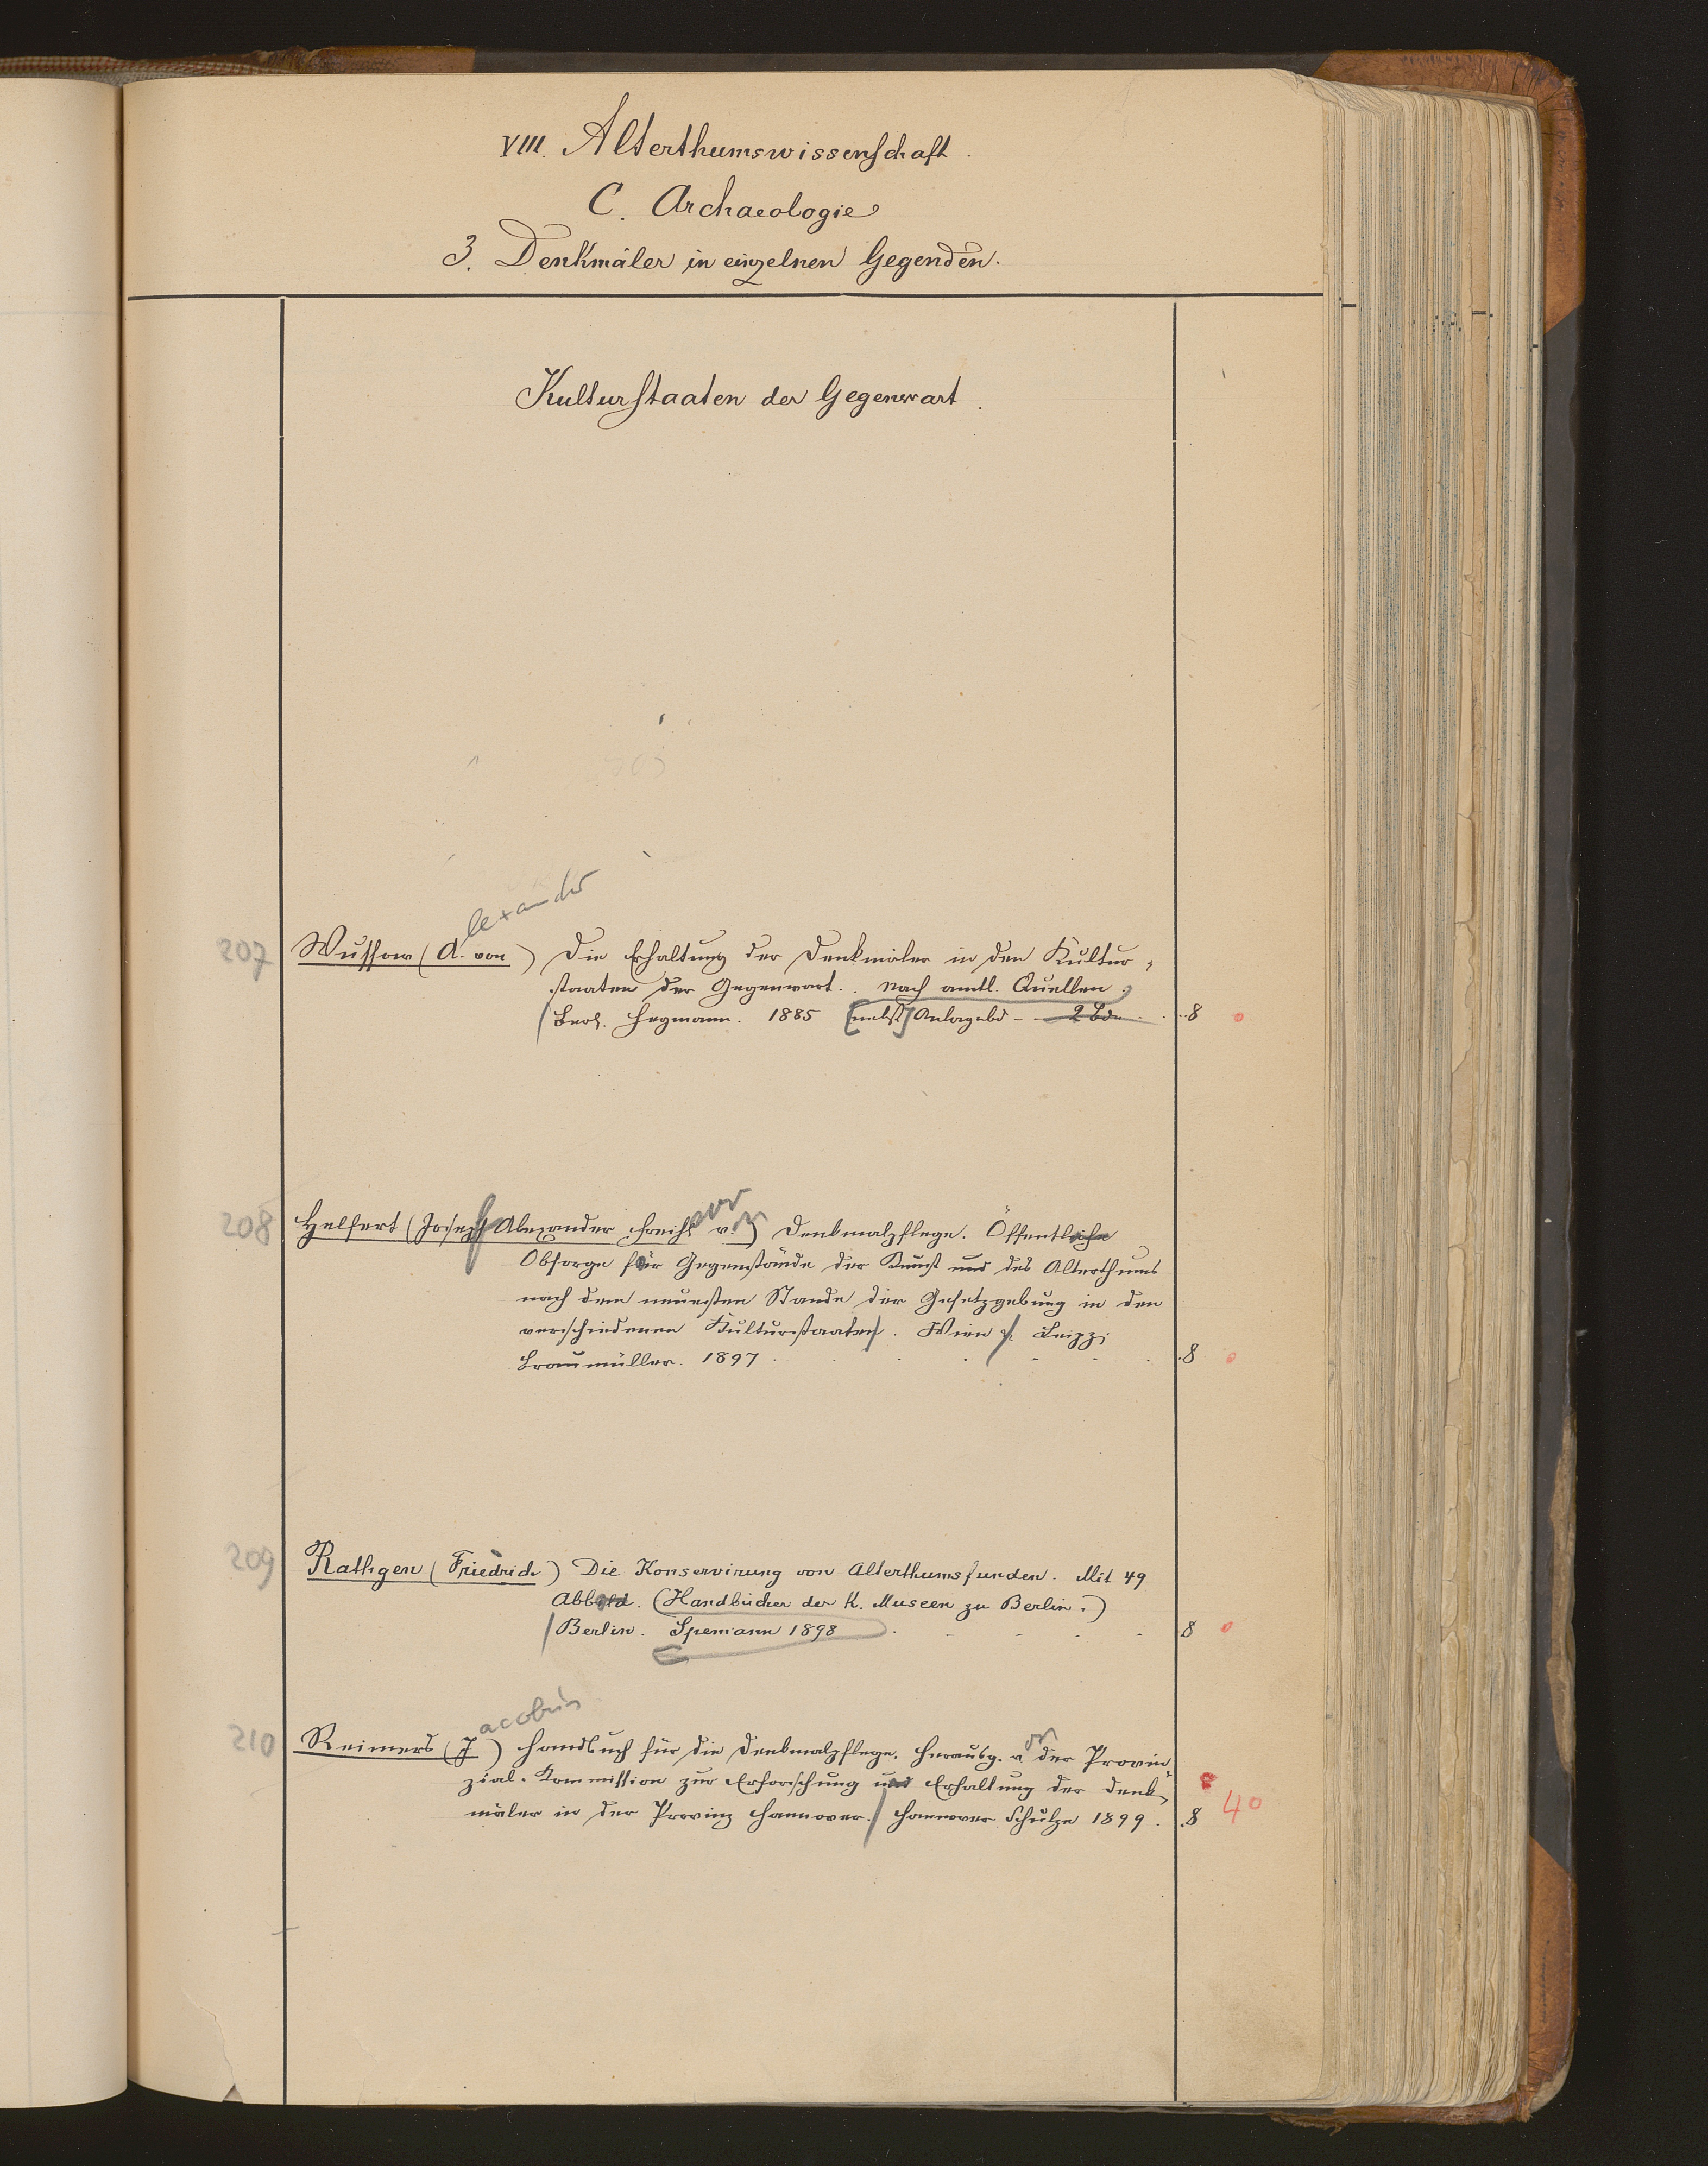 VIII. Alterthumswissenschaft.
C. Archaeologie
3. Denkmäler in einzelnen Gegenden.
Kulturstaaten der Gegenwart.
lexander
207 Wussow (A. von) Die Erhaltung der Denkmäler in den Kultur-
staaten der Gegenwart. Nach amtl. Quellen.
Berl. Heymann. 1885 [nebst] Anlagebd - 2 Bde. 8 0
208 Helfert (Joseph Alexander Freih. von) Denkmalpflege. Öffentliche
Obsorge für Gegenstände der Kunst und des Alterthums
nach dem neuesten Stande der Gesetzgebung in den
verschiedenen Kulturstaaten. Wien u. Leipzi
Braumüller. 1897. 8 0
209 Rathgen (Friedrich) Die Konservirung von Alterthumsfunden. Mit 49
Abbild. (Handbücher der K. Museen zu Berlin.)
Berlin. Spemann 1898. 8 0
acobus
210 Reimers (J) Handbuch für die Denkmalpflege. Herausg. von der Provin-
zial-Kommission zur Erforschung und Erhaltung der Denk-
mäler in der Provinz Hannover. Hannover Schulze 1899. 8 40